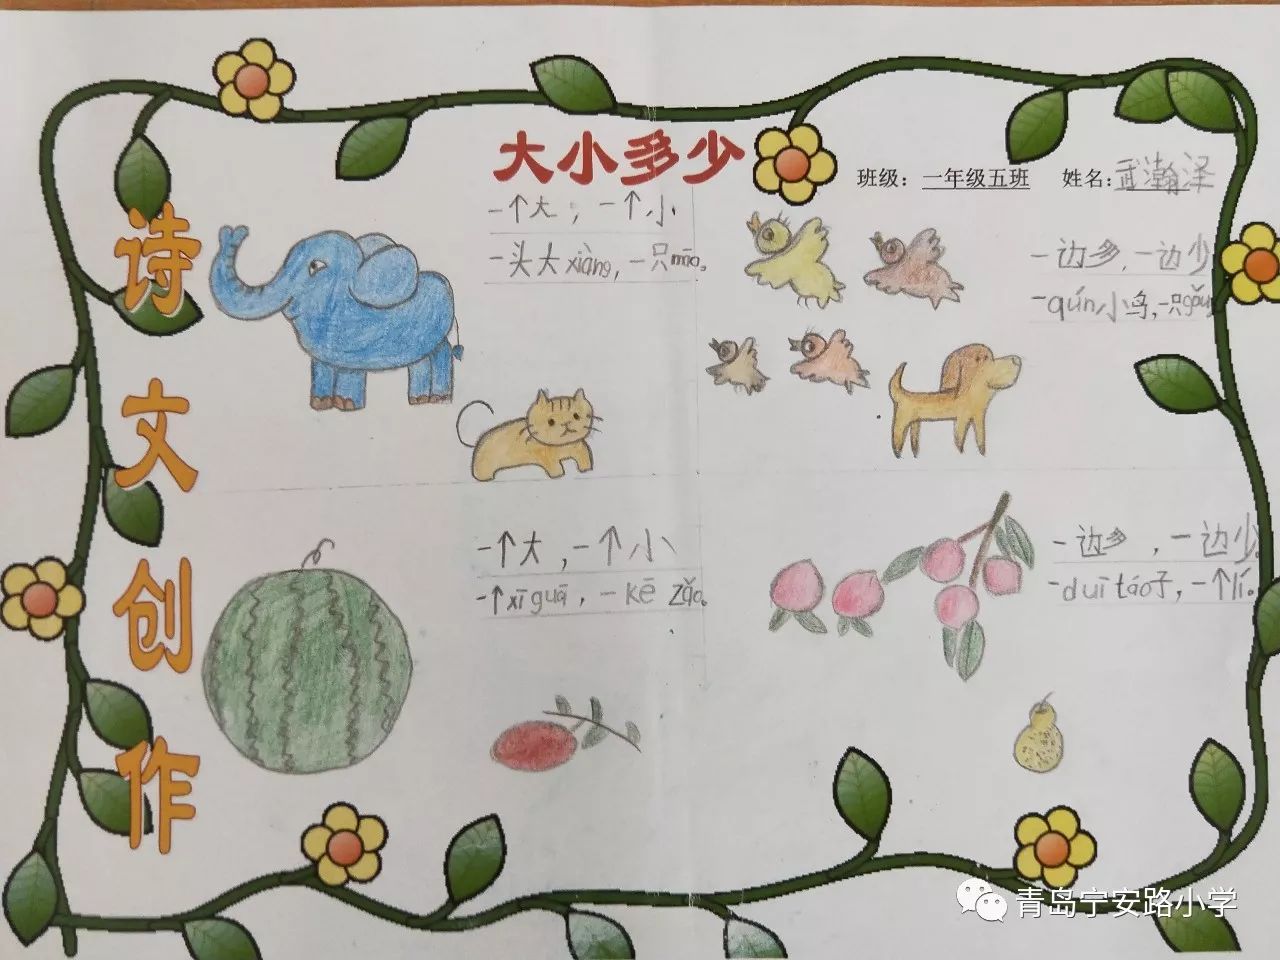 大小多少
班级：一年级五班 姓名：武瀚泽
诗文创作
一个大，一个小
一头大xiàng，一只māo。
一边多，一边少
一qún小鸟，一只gǒu
一个大，一个小
一个xīguā，一kē zǎo。
一边多，一边少
一duī táo子，一个lí。
青岛宁安路小学